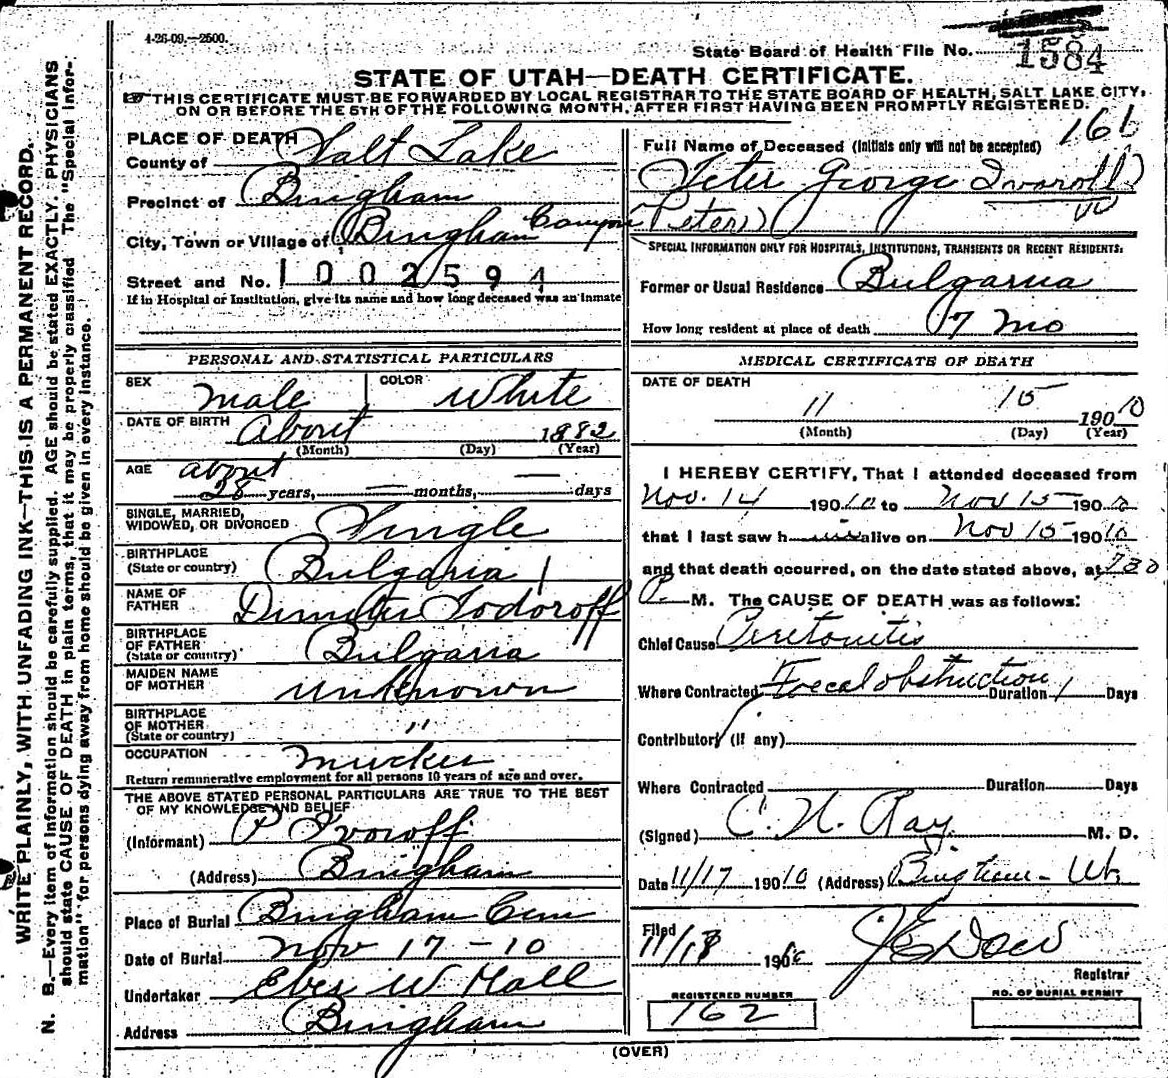 4-26-09.—2500.
State Board of Health File No. 1584
STATE OF UTAH—DEATH CERTIFICATE.
☞THIS CERTIFICATE MUST BE FORWARDED BY LOCAL REGISTRAR TO THE STATE BOARD OF HEALTH, SALT LAKE CITY,
ON OR BEFORE THE 5TH OF THE FOLLOWING MONTH, AFTER FIRST HAVING BEEN PROMPTLY REGISTERED.
WRITE PLAINLY, WITH UNFADING INK—THIS IS A PERMANENT RECORD.
N. B.—Every item of information should be carefully supplied. AGE should be stated EXACTLY. PHYSICIANS
should state CAUSE OF DEATH in plain terms, that it may be properly classified. The "Special Infor-
mation" for persons dying away from home should be given in every instance.
PLACE OF DEATH
County of Salt Lake
Precinct of Bingham
City, Town or Village of Bingham Canyon
Street and No. 1002594
If in Hospital or Institution, give its name and how long deceased was an inmate
PERSONAL AND STATISTICAL PARTICULARS
SEX male COLOR White
DATE OF BIRTH About 1882
(Month) (Day) (Year)
AGE about
28 years, — months, — days
SINGLE, MARRIED,
WIDOWED, OR DIVORCED Single
BIRTHPLACE
(State or country) Bulgaria
NAME OF
FATHER Dimiter Todoroff
BIRTHPLACE
OF FATHER
(State or country) Bulgaria
MAIDEN NAME
OF MOTHER unknown
BIRTHPLACE
OF MOTHER
(State or country) "
OCCUPATION mucker
Return remunerative employment for all persons 10 years of age and over.
THE ABOVE STATED PERSONAL PARTICULARS ARE TRUE TO THE BEST
OF MY KNOWLEDGE AND BELIEF
(Informant) P Ivoroff
(Address) Bingham
Place of Burial Bingham Cem
Date of Burial Nov 17 - 10
Undertaker Eber W Hall
Address Bingham
161
Full Name of Deceased (Initials only will not be accepted)
Peter George
(Peter)
SPECIAL INFORMATION ONLY FOR HOSPITALS, INSTITUTIONS, TRANSIENTS OR RECENT RESIDENTS.
Former or Usual Residence Bulgaria
How long resident at place of death 7 mo
MEDICAL CERTIFICATE OF DEATH
DATE OF DEATH
11 15 19010
(Month) (Day) (Year)
I HEREBY CERTIFY, That I attended deceased from
Nov. 14 19010 to Nov 15 190
that I last saw h im alive on Nov 15 19010
and that death occurred, on the date stated above, at 730
P. M. The CAUSE OF DEATH was as follows:
Chief Cause Peretonitis
Where Contracted Foecal obstruction Duration 1 Days
Contributory (if any)
Where Contracted Duration Days
(Signed) C. N. Ray M. D.
Date 11/17 19010 (Address) Bingham - Ut.
Filed
11/18 190
Registrar
REGISTERED NUMBER
162
NO. OF BURIAL PERMIT
(OVER)